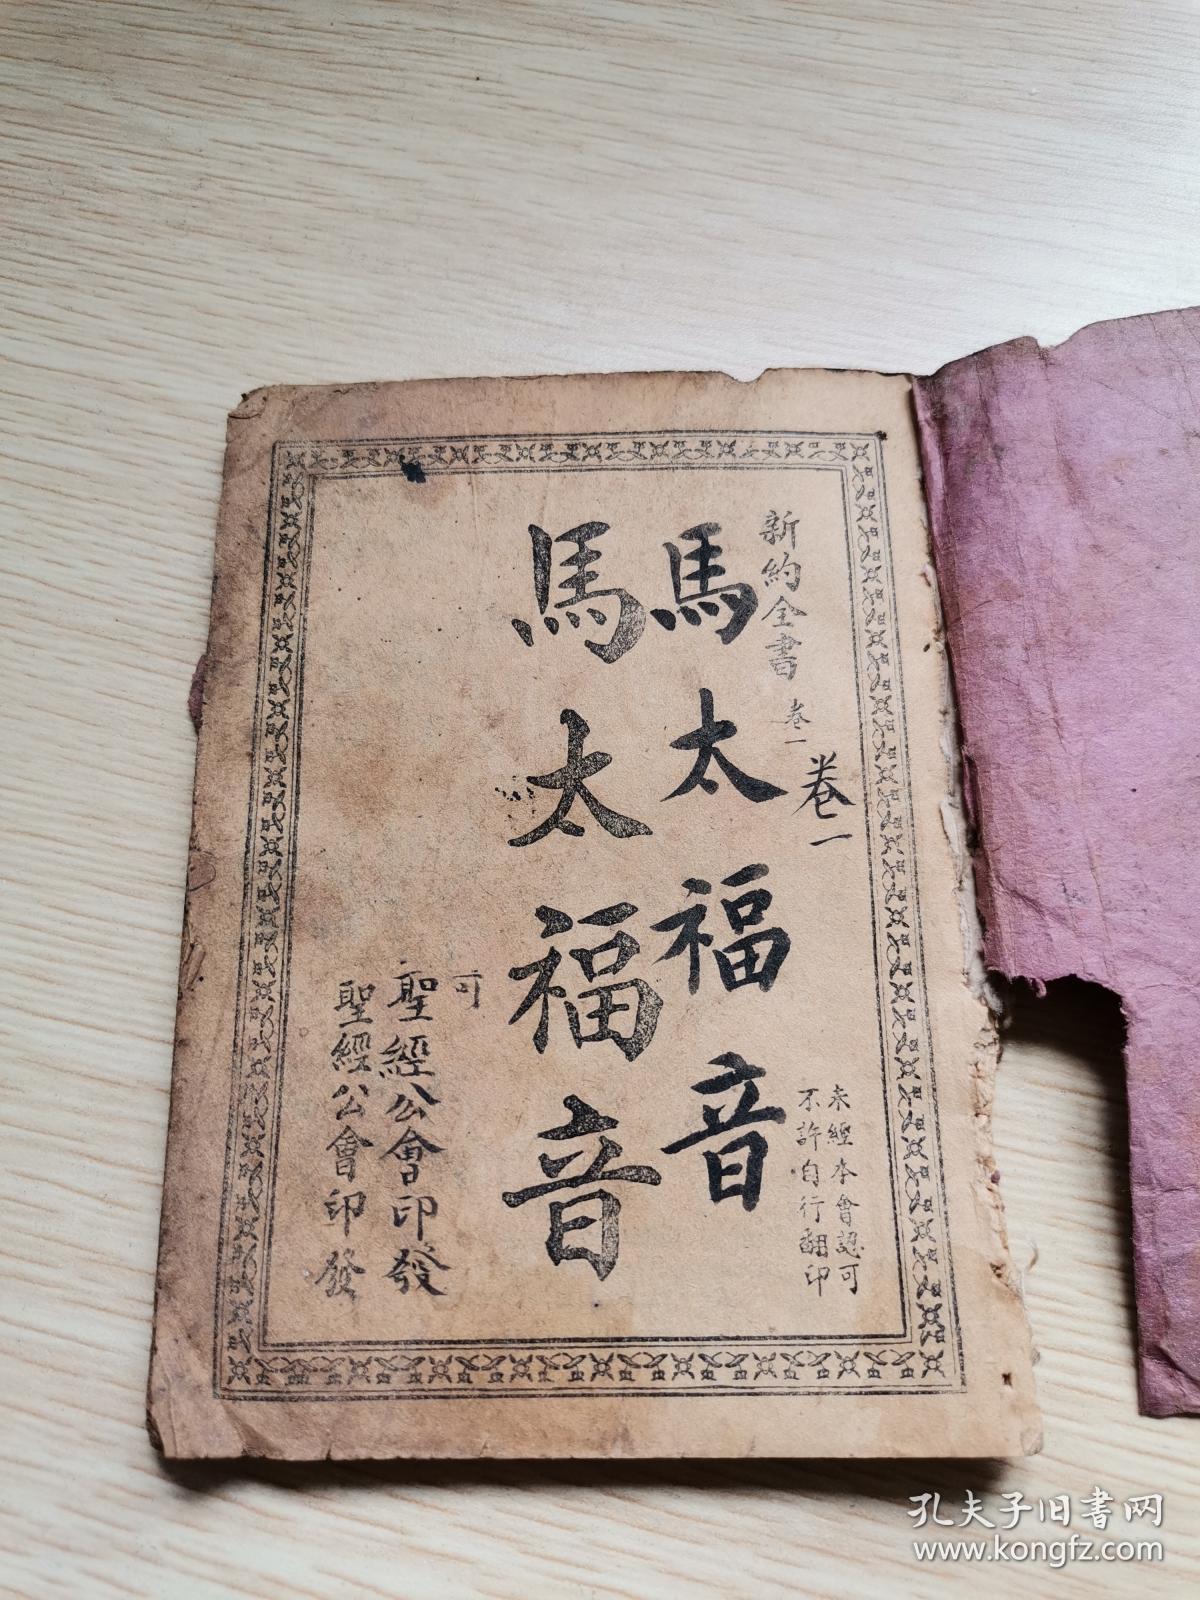 新約全書 卷一
卷一
未經本會認可
不許自行翻印
馬太福音
馬太福音
可
聖經公會印發
聖經公會印發
孔夫子旧书网
www.kongfz.com